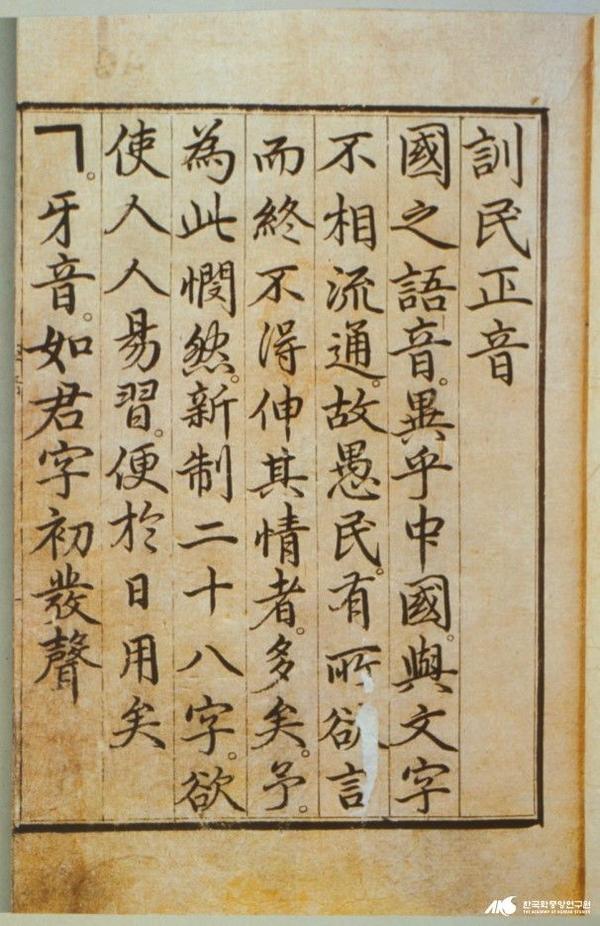 訓民正音
國之語音。異乎中國。與文字
不相流通。故愚民。有所欲言
而終不得伸其情者。多矣。予。
為此憫然。新制二十八字。欲
使人人易習。便於日用矣
ㄱ。牙音。如君字初發聲
AKS 한국학중앙연구원
THE ACADEMY OF KOREAN STUDIES